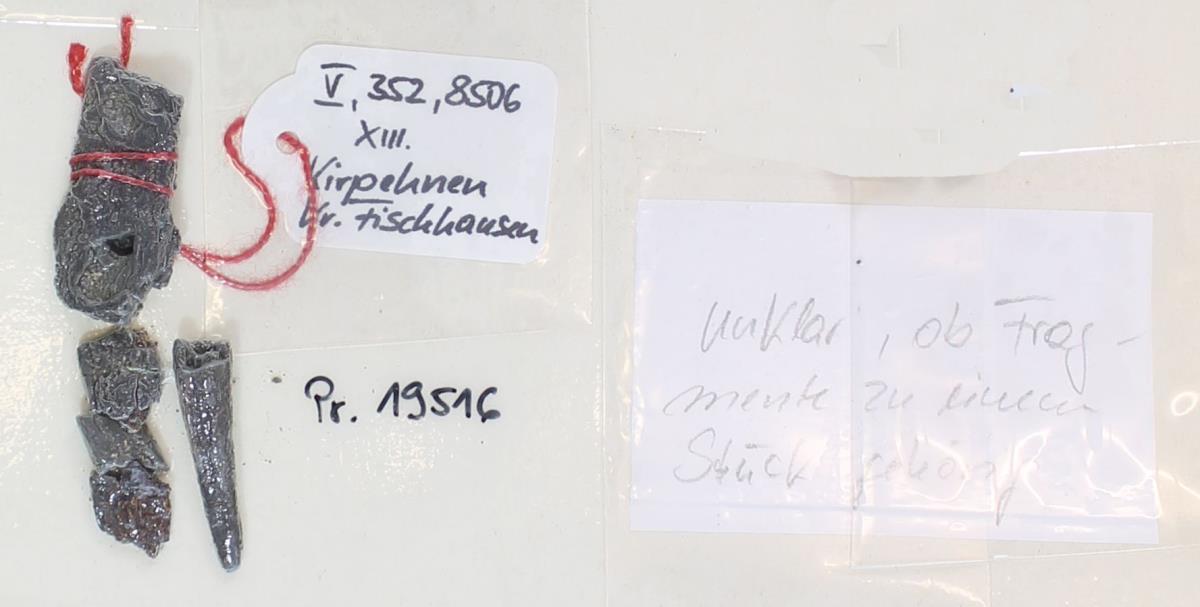 V, 352, 8506
XIII.
Kirpehnen
Kr. Fischhausen
Pr. 19516
unklar, ob Frag-
mente zu einem
Stück gehörig